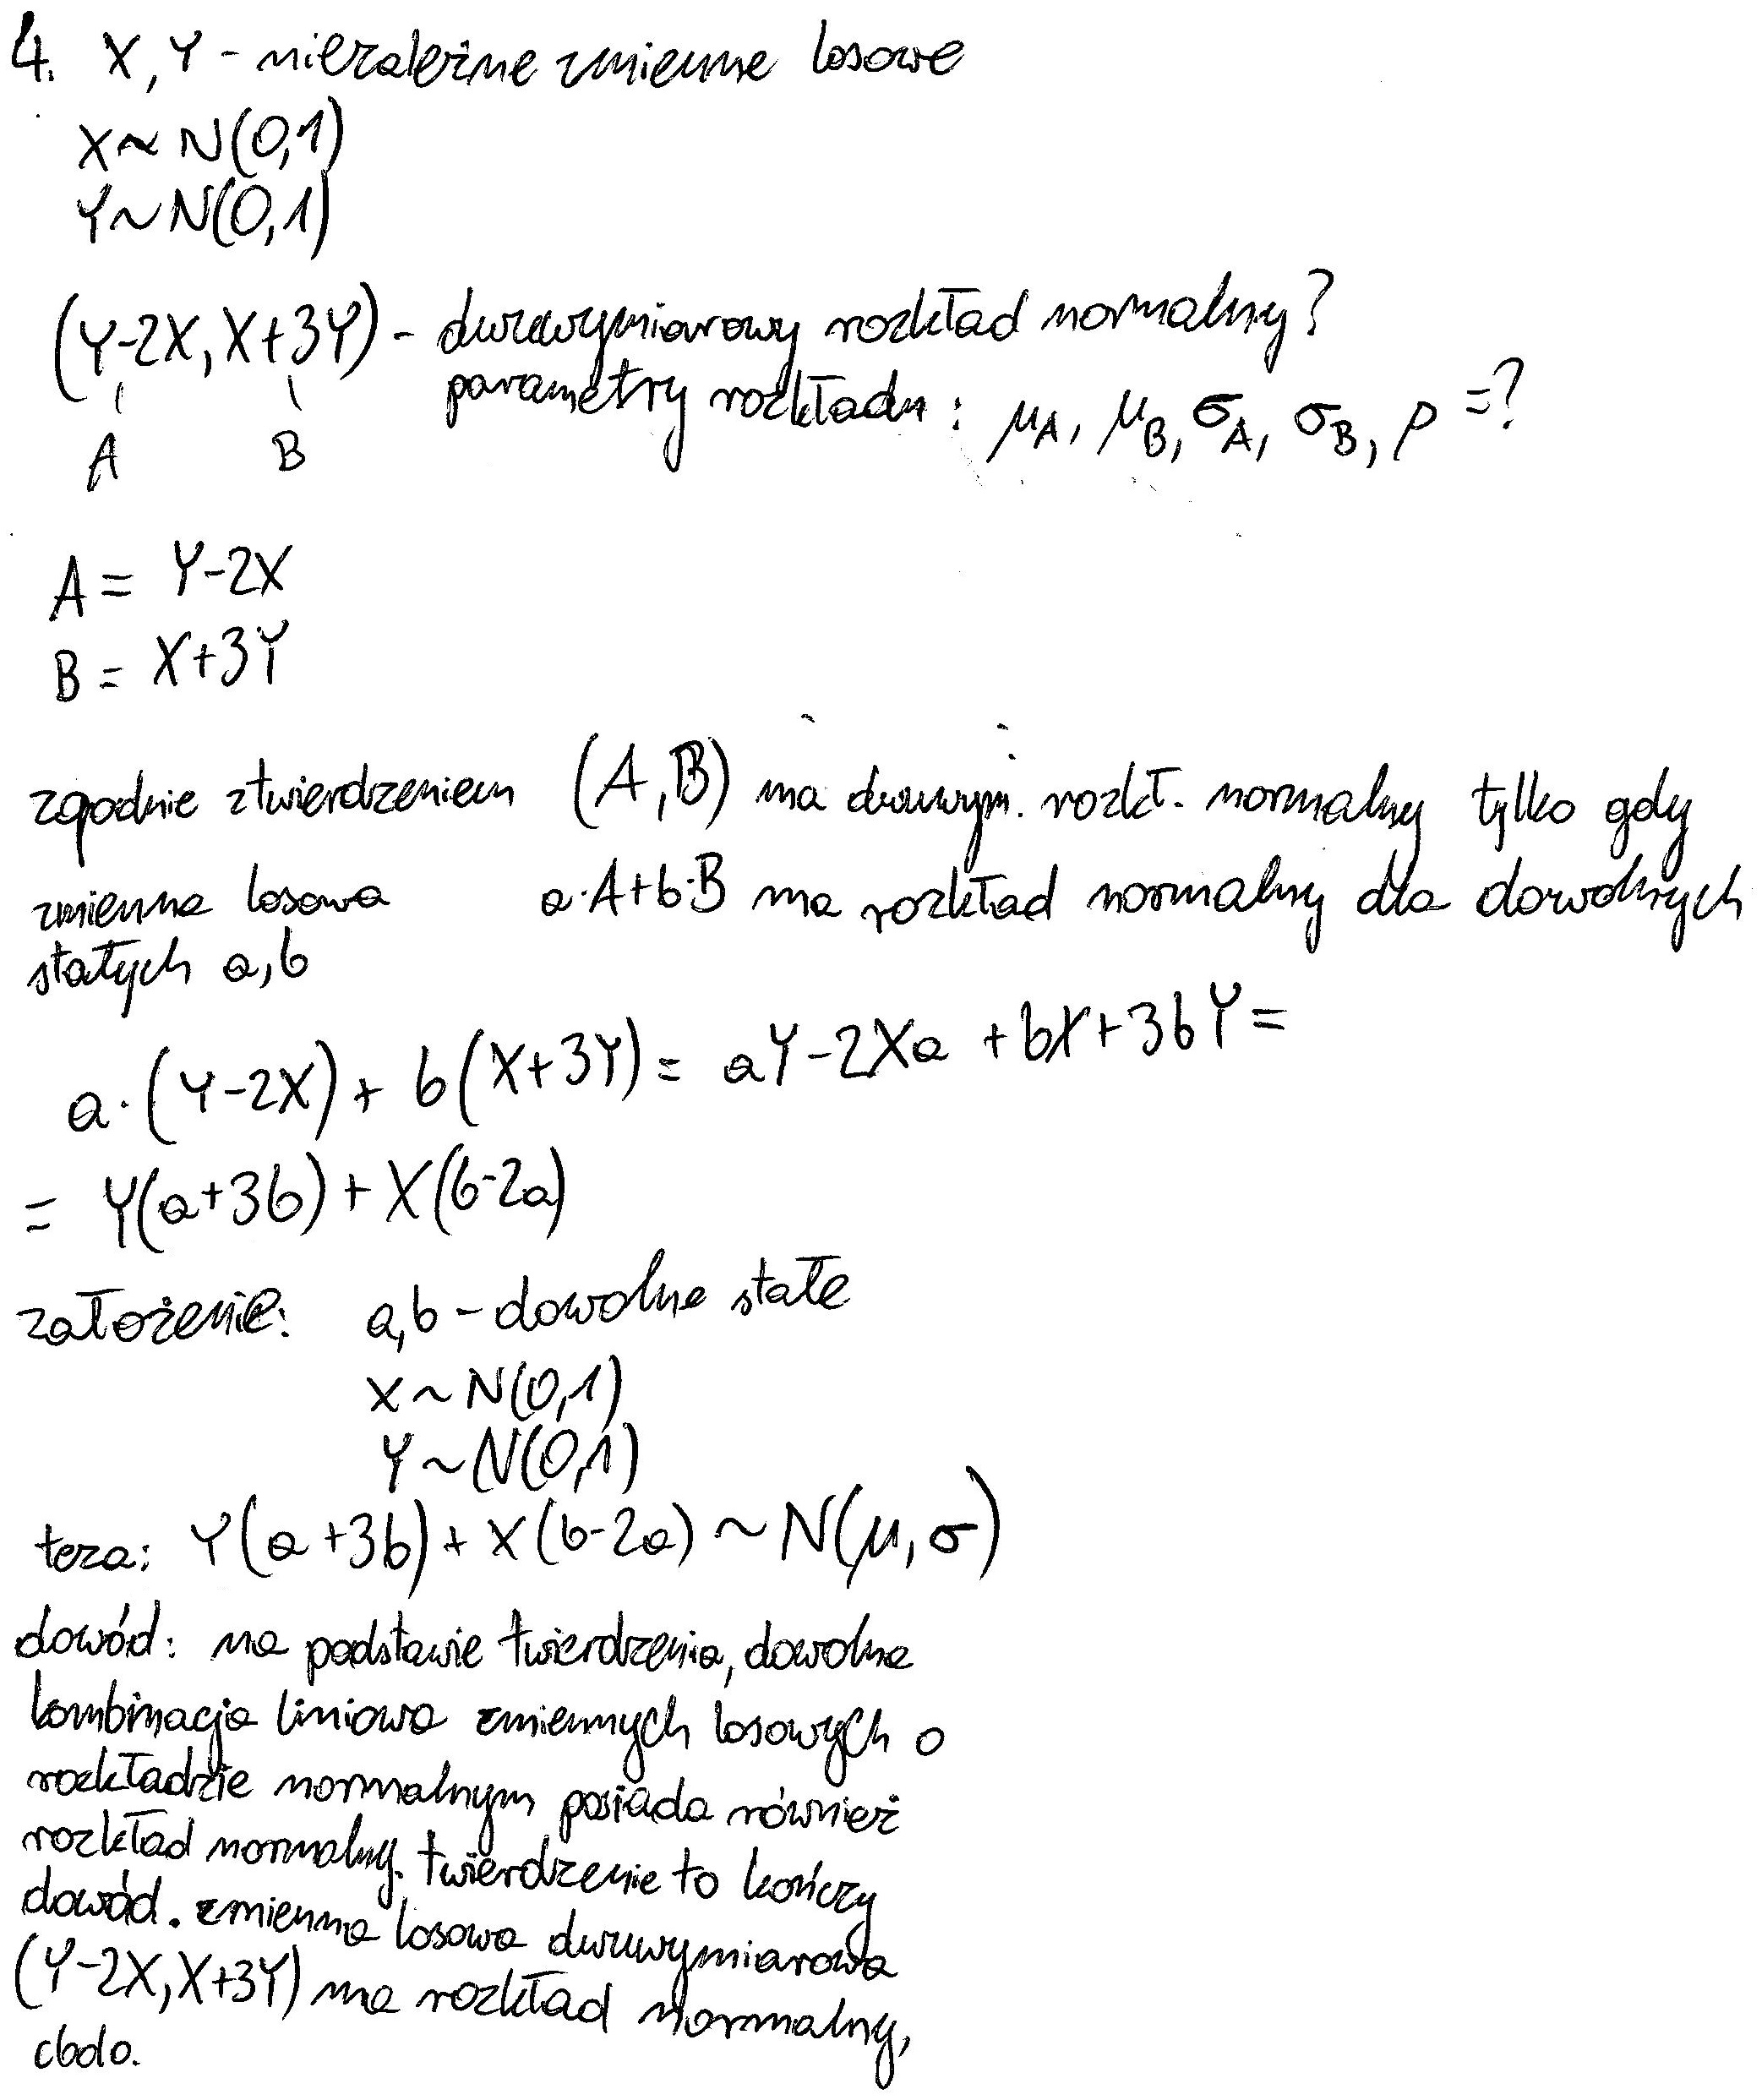 4. X, Y - niezależne zmienne losowe
X ~ N(0,1)
Y ~ N(0,1)
(Y-2X, X+3Y) - dwuwymiarowy rozkład normalny?
parametry rozkładu: μA, μB, σA, σB, ρ =?
A B
A = Y-2X
B = X+3Y
zgodnie z twierdzeniem (A,B) ma dwuwym. rozkł. normalny tylko gdy
zmienna losowa a·A+b·B ma rozkład normalny dla dowolnych
stałych a,b
a·(Y-2X) + b(X+3Y) = aY-2Xa + bX+3bY =
= Y(a+3b) + X(b-2a)
założenie: a,b - dowolne stałe
X ~ N(0,1)
Y ~ N(0,1)
teza: Y(a+3b) + X(b-2a) ~ N(μ,σ)
dowód: na podstawie twierdzenia, dowolna
kombinacja liniowa zmiennych losowych o
rozkładzie normalnym posiada również
rozkład normalny. twierdzenie to kończy
dowód. zmienna losowa dwuwymiarowa
(Y-2X, X+3Y) ma rozkład normalny,
cbdo.